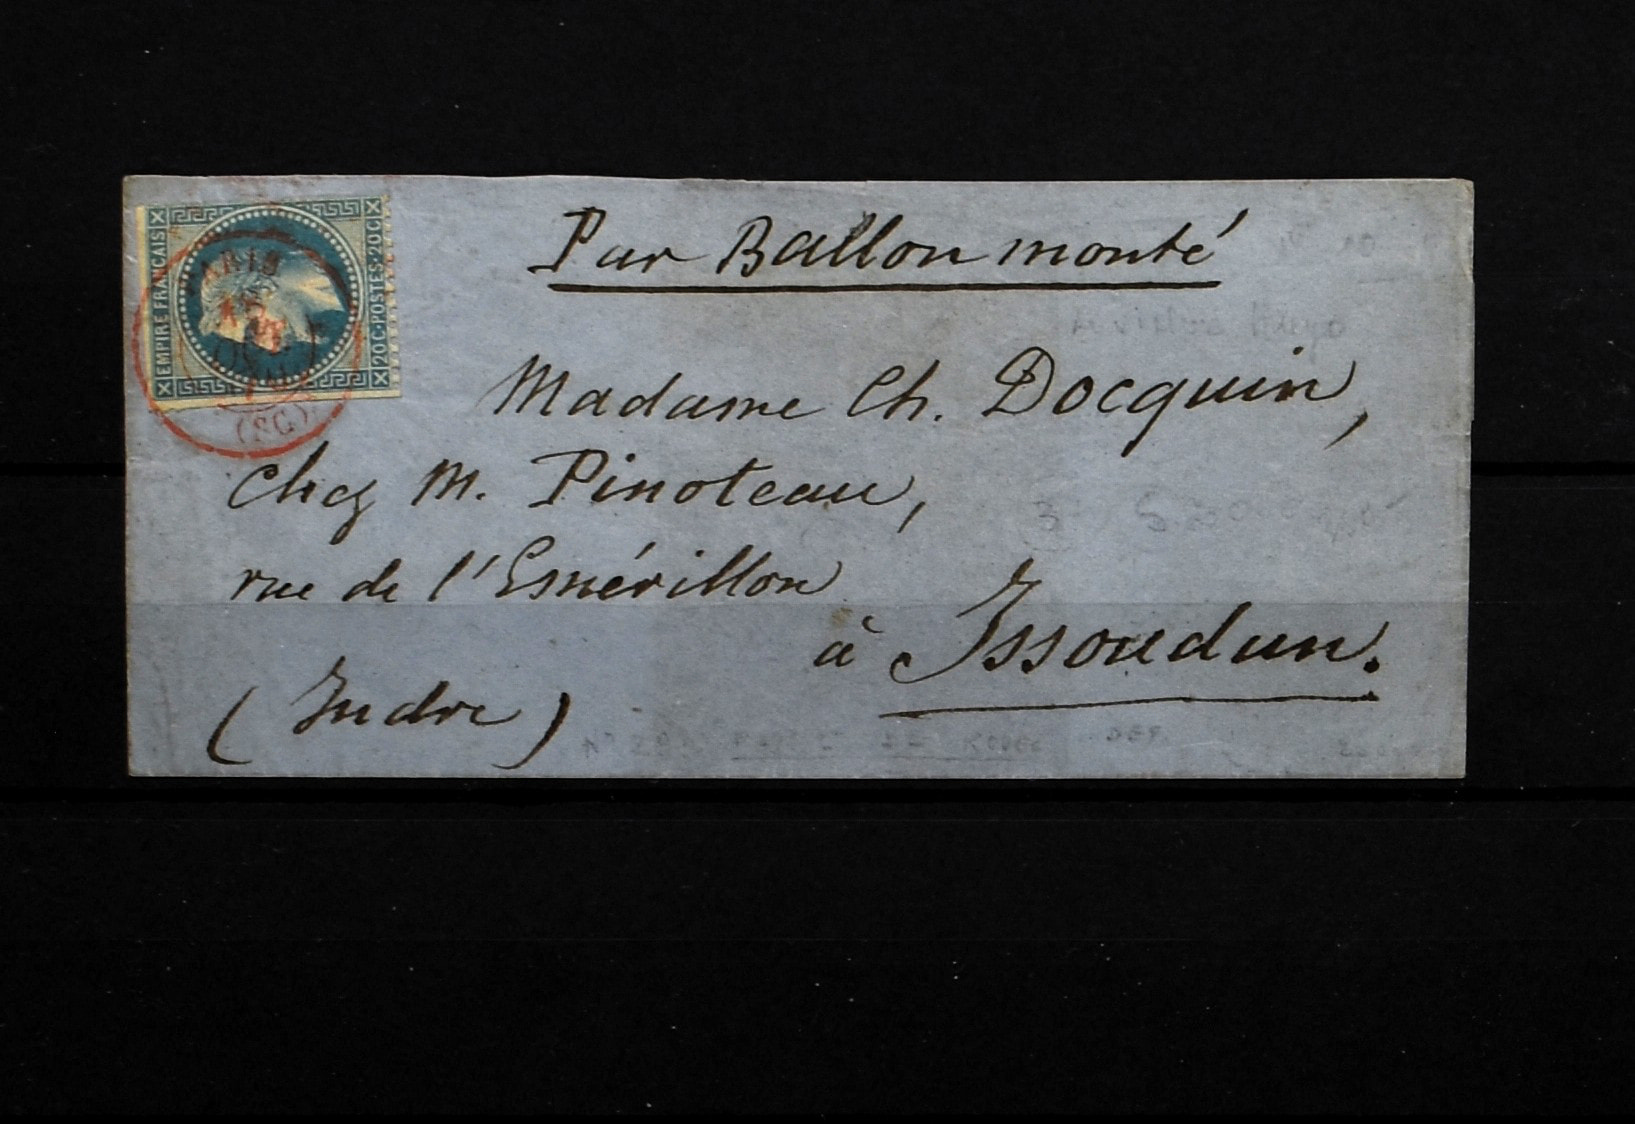 EMPIRE FRANÇAIS
20C·POSTES·20C
PARIS
(SC)
Par Ballon monté
Madame Ch. Docquin,
chez M. Pinoteau,
rue de l'Esmérillon
à Issoudun.
(Indre)